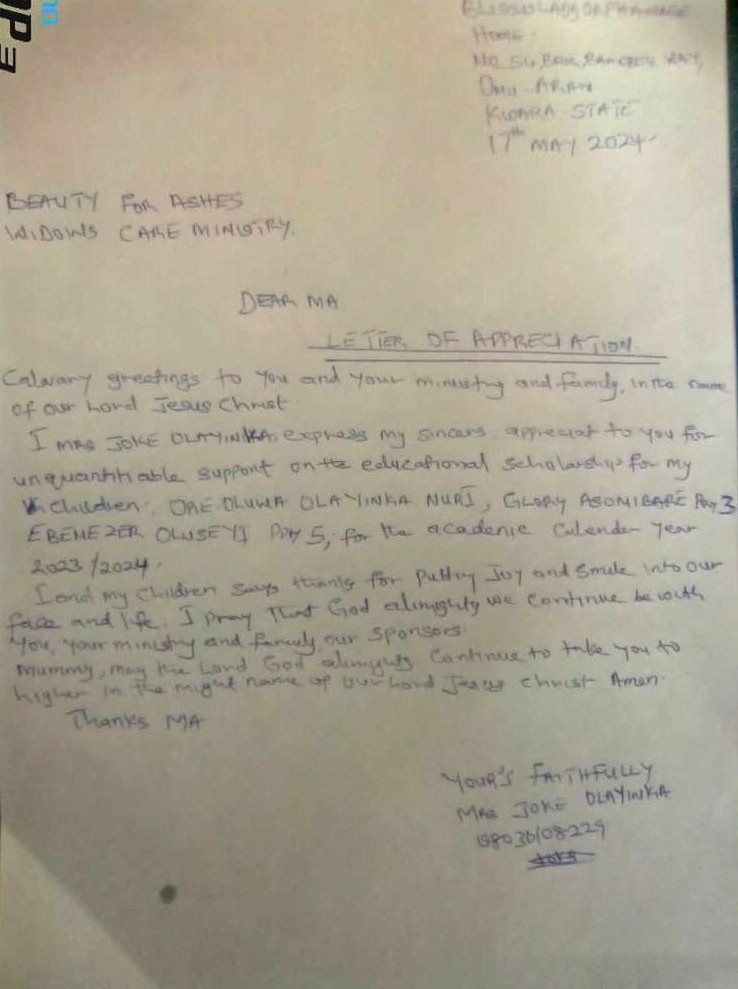 HOME.
OMU-ARAN
KWARA STATE
17th MAY 2024.
BEAUTY FOR ASHES
WIDOWS CARE MINISTRY.
DEAR MA
LETTER OF APPRECIATION
Calvary greetings to you and your ministry and family, in the name
of our Lord Jesus Christ
I MRS JOKE OLAYINKA express my sincers appreciat to you for
unquantifiable support on the educational scholarship for my
children, ORE OLUWA OLAYINKA NUR1, GLORY ASONIBARE Pry 3
EBENEZER OLUSEYI PRY 5, for the academic Calender year
2023/2024.
I and my children says thanks for putting Joy and Smile into our
face and life. I pray that God almighty we continue be with
you, your ministry and family, our sponsors.
Mummy, may the Lord God almighty Continue to take you to
higher in the might name of our Lord Jesus Christ Amen.
Thanks MA
YOUR'S FAITHFULLY
MRS JOKE OLAYINKA
08036108229